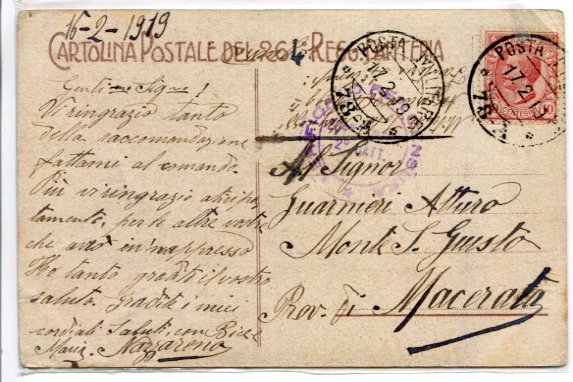 16-2-1919
CARTOLINA POSTALE DEL 261º REGG. FANTERIA
POSTA MILITARE
17.2.19
78
POSTA MILITARE
17.2.19
78
CENTESIMI 10
Gent. Sig.
Vi ringrazio tanto
della raccomandazione
fattami al comando.
Più vi ringrazio
tamente, per le altre volte
che avrò in appresso
Ho tanto gradito il vostro
saluto. Gradite i miei
cordiali saluti, con Bice e
Maria. Nazzareno
Al Signor
Guarnieri Arturo
Monte S. Giusto
Prov. di Macerata